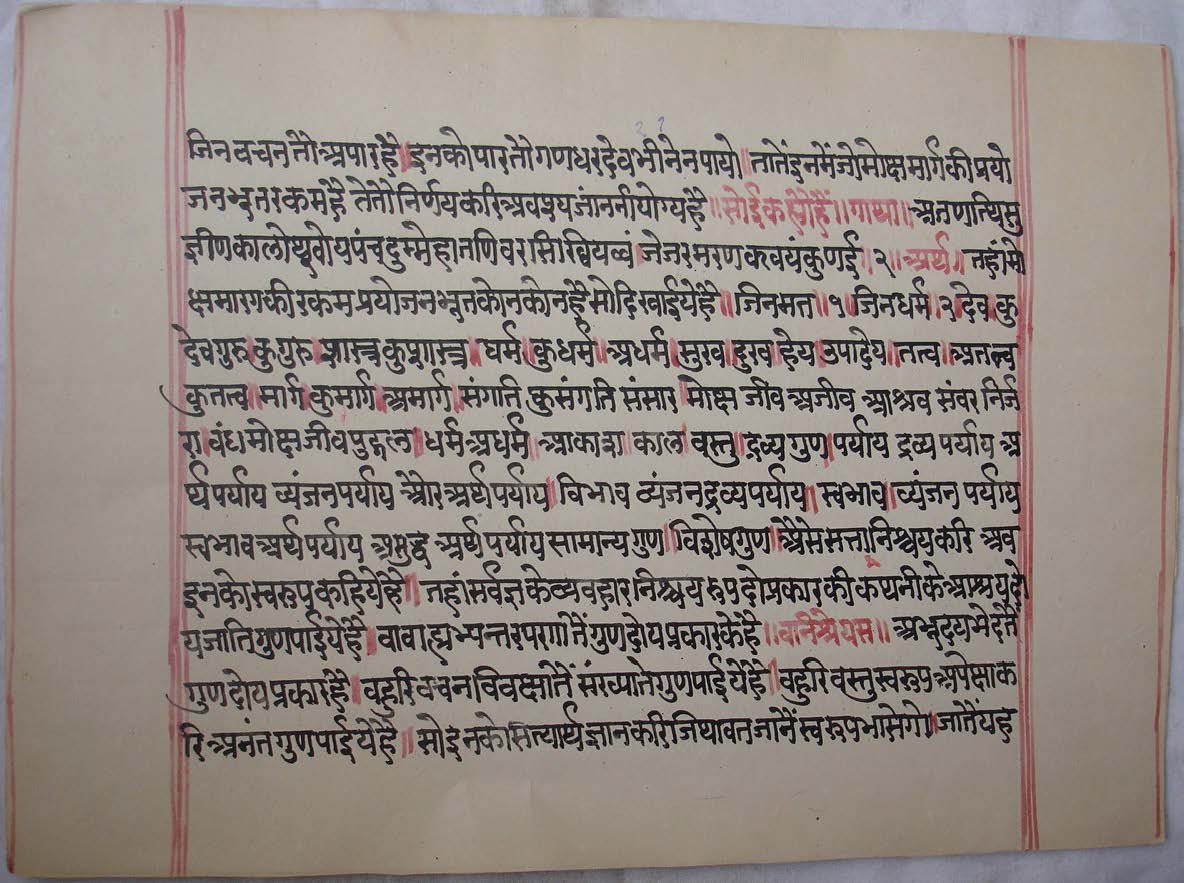 जिनवचनतौअपारहै॥इनकोपारतौगणधरदेवभीनेनपायो॥तातेंइनमेंजोमोक्षमार्गकीप्रयो
जनभूतरकमहै तेतौनिर्णयकरिअवश्यजांननींयोग्यहै॥सोईकहीहै॥॥गाथा॥अतणत्थिसु
ईणकालोथुवोयपंचदुम्मेहातणिवरसिखियव्वं जेजरमरणकवयंकुणई।२॥अर्थ॥तहांमो
क्षमारगकीरकमप्रयोजनभूतकोनकोनहैसोदिखाईयेहै॥जिनमत॥१।जिनधर्म।२।देव।कु
देवगुरुकुगुरु शास्त्रकुशास्त्र॥धर्म।कुधर्म।अधर्म।सुख।दुख।हेय उपादेय॥तत्व॥अतत्व
कुतत्व॥मार्ग कुमार्ग अमार्ग॥संगति कुसंगति संसार मोक्ष जीव अजीव आश्रव संवर निर्ज
रा।बंधमोक्षजीवपुद्गल॥धर्मअधर्म॥आकाश॥काल वस्तु॥द्रव्यगुण॥पर्याय द्रव्यपर्याय अ
र्थपर्याय व्यंजनपर्याय औरअर्थपर्याय॥विभाव व्यंजनद्रव्यपर्याय॥स्वभाव॥व्यंजन पर्याय
स्वभावअर्थपर्याय अशुद्ध अर्थपर्यायसामान्यगुण॥विशेषगुण॥औसेसत्तानिश्चयकरि अव
इनकोस्वरूपकहियेहै॥ तहांसर्वज्ञकेव्यवहारनिश्चयरूपदोप्रकारकीकथनीकेआश्रयदो
यजातिगुणपाईयेहै॥ वावाह्यभ्यन्तरपरणांनेंगुणदोयप्रकारकेहै॥॥वानिश्रेयस॥॥अभ्यूदयभेदतें
गुणदोयप्रकारहै॥ वहुरिवचनविवक्षातें संख्यातेगुणपाईयेहै॥वहुरिवस्तुस्वरूपअपेक्षाक
रिअनंतगुणपाईयेहै॥ सोइनकोसत्यार्थज्ञानकरिजिथावतजानेंस्वरूपभासेगो।जातेंयह